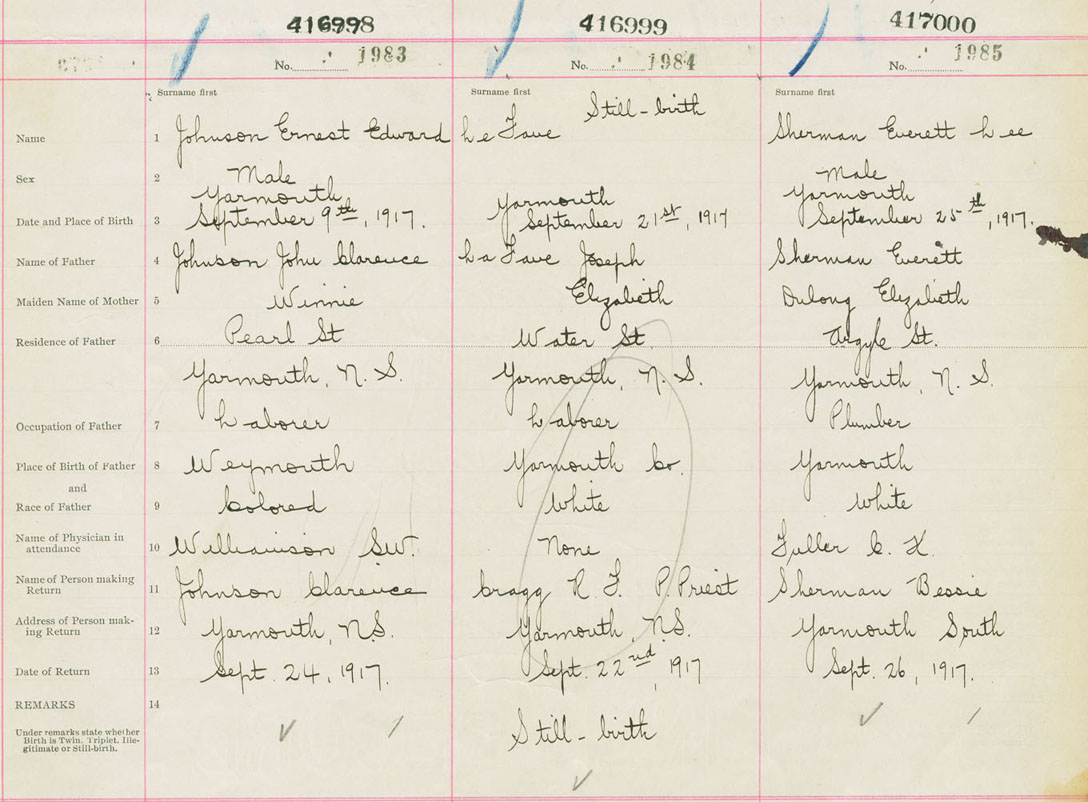 416998 416999 417000
No. 1983 No. 1984 No. 1985
Surname first Surname first Surname first
Still-birth
Name 1 Johnson Ernest Edward Le Fave Sherman Everett Lee
Sex 2 Male Male
Yarmouth Yarmouth Yarmouth
Date and Place of Birth 3 September 9th, 1917. September 21st, 1917 September 25th, 1917.
Name of Father 4 Johnson John Clarence La Fave Joseph Sherman Everett
Maiden Name of Mother 5 Winnie Elizabeth Dulong Elizabeth
Residence of Father 6 Pearl St Water St. Argyle St.
Yarmouth, N. S. Yarmouth, N. S. Yarmouth, N. S.
Occupation of Father 7 Laborer Laborer Plumber
Place of Birth of Father 8 Weymouth Yarmouth Co. Yarmouth
and
Race of Father 9 Colored White White
Name of Physician in
attendance 10 Williamson S.W. None Fuller C. K.
Name of Person making
Return 11 Johnson Clarence Cragg R. F. P. Priest Sherman Bessie
Address of Person mak-
ing Return 12 Yarmouth, N.S. Yarmouth, N.S. Yarmouth South
Date of Return 13 Sept. 24, 1917. Sept. 22nd, 1917 Sept. 26, 1917.
REMARKS 14
Under remarks state whether
Birth is Twin. Triplet, Ille-
gitimate or Still-birth.
Still-birth